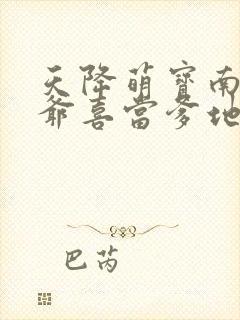 天降萌宝南
爷喜当爹地
巴芮